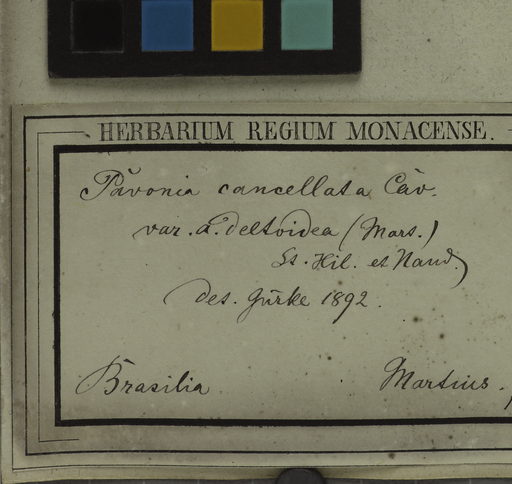 HERBARIUM REGIUM MONACENSE.
Pavonia cancellata Cav.
var. α. deltoidea (Mart.)
St. Hil. et Naud.
det. Gürke 1892.
Brasilia Martius.